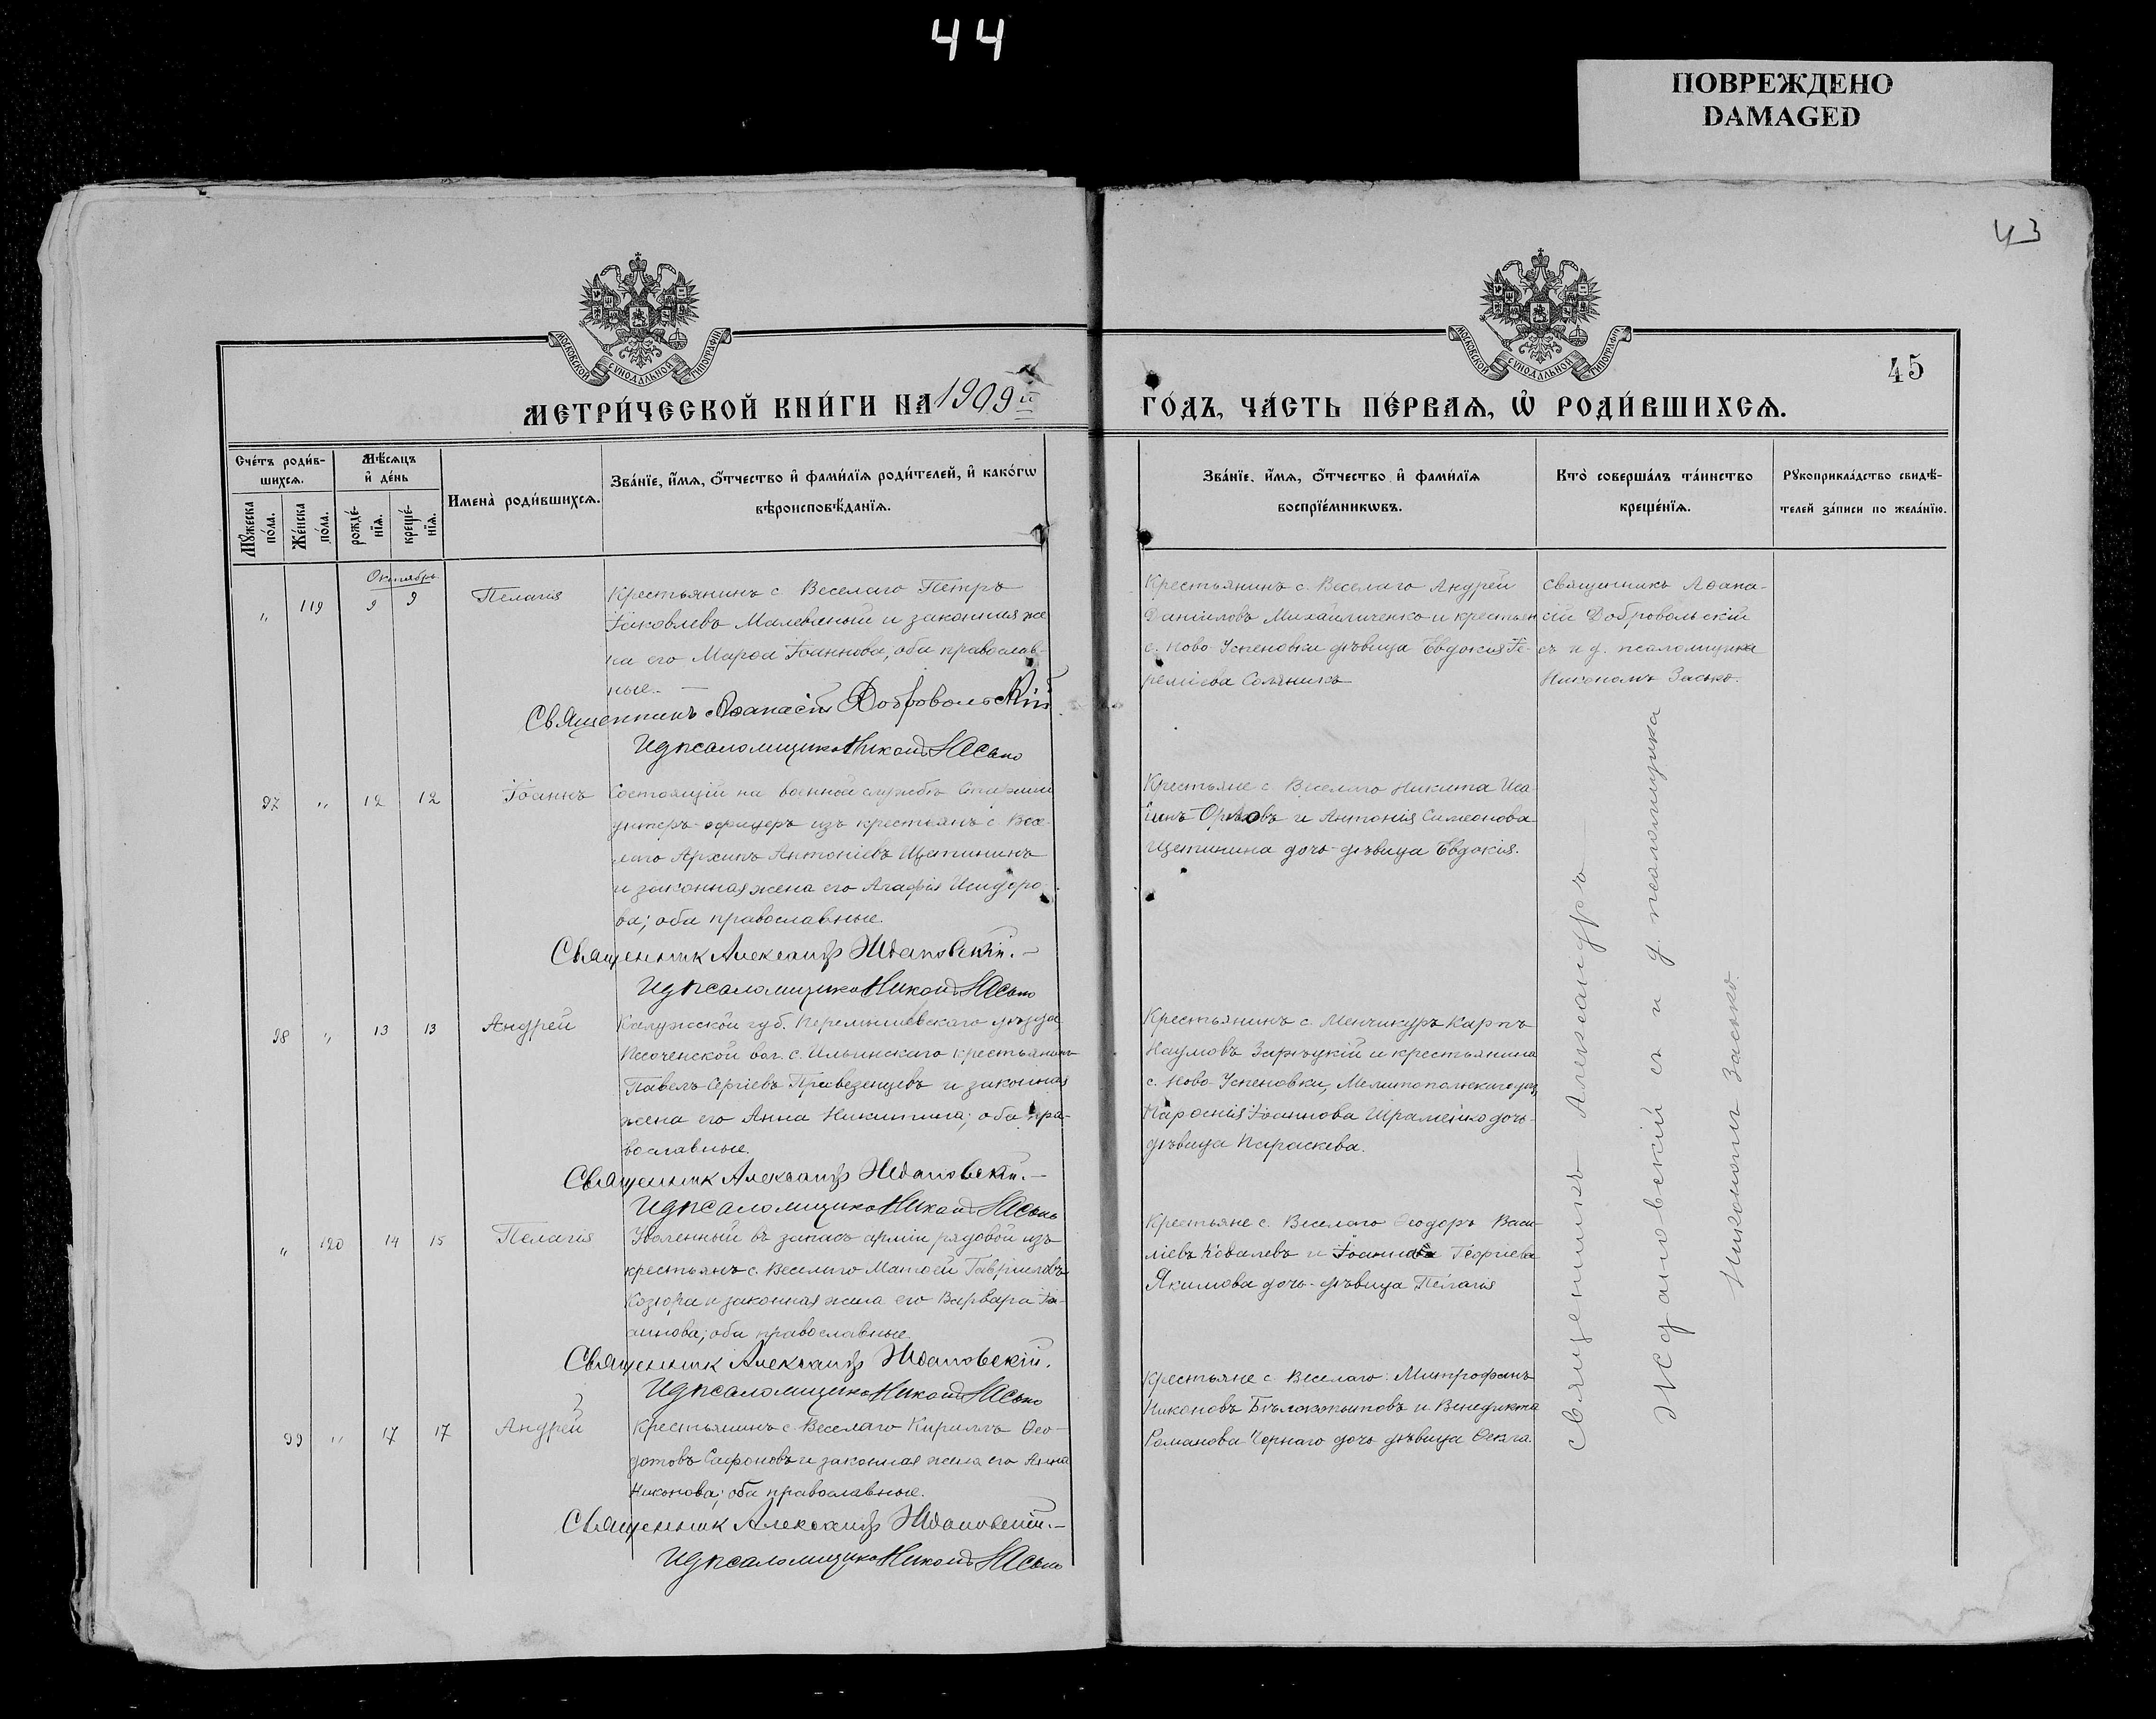 44
ПОВРЕЖДЕНО
DAMAGED
43
МОСКОВСКОЙ СѴНОДАЛЬНОЙ ТИПОГРАФІИ
МОСКОВСКОЙ СѴНОДАЛЬНОЙ ТИПОГРАФІИ
45
МЕТРИ́ЧЕСКОЙ КНИ́ГИ НА 1909й
ГО́ДЪ, ЧА́СТЬ ПЕ́РВАЯ, Ѡ҆ РОДИ́ВШИХСЯ.
Сче́тъ роди́в-
шихся.
Мѣ́сяцъ
и҆ де́нь
Мꙋ́жеска
по́ла.
Же́нска
по́ла.
рожде́-
нїя.
креще́-
нїя.
Имена̀ роди́вшихся.
Зва́нїе, и҆́мя, ѻ҆́тчество и҆ фами́лїя роди́телей, и҆ како́гѡ
вѣроисповѣ́данїя.
Зва́нїе, и҆́мя, ѻ҆́тчество и҆ фами́лїя
воспрїе́мникѡвъ.
Кто̀ соверша́лъ та́инство
креще́нїя.
Рꙋкоприкла́дство свидѣ́-
телей за́писи по жела́нїю.
Октябрь
" 119 9 9 Пелагія
Крестьянинъ с. Веселаго Петръ
Іаковлевъ Малеваный и законная же
на его Марѳа Іоаннова, оба православ-
ные.
Священникъ Аѳанасій Добровольскій
И д псаломщика Никонъ Засько
Крестьянинъ с. Веселаго Андрей
Даніиловъ Михайличенко и крестьян
с. Ново-Успеновки дѣвица Евдокія Іе-
реміева Соляникъ
Священникъ Аѳана-
сій Добровольскій
съ и д. псаломщика
Никономъ Засько.
97 " 12 12 Іоаннъ
Состоящій на военной службѣ Старшій
унтеръ-офицеръ изъ крестьянъ с. Весе-
лаго Архипъ Антоніевъ Щетининъ
и законная жена его Агафія Исидоро-
ва; оба православные.
Священник Александръ Ждановскій.
И д псаломщика Никонъ Засько
Крестьяне с. Веселаго Никита Иса-
іинъ Орловъ и Антонія Симеонова
Щетинина дочь-дѣвица Евдокія.
98 " 13 13 Андрей
Калужской губ. Перемышлевскаго уѣзда
Песоченской вол. с. Ильинскаго крестьянинъ
Павелъ Сергіевъ Привезенцевъ и законная
жена его Анна Никитина; оба пра-
вославные.
Священник Александръ Ждановскій.
И д псаломщика Никонъ Засько
Крестьянинъ с. Менчикуръ Карпъ
Наумовъ Зарѣцкій и крестьянина
с. Ново-Успеновки, Мелитопольскаго уѣз,
Іоаннова Шрамейко дочь-
дѣвица Параскева.
" 120 14 15 Пелагія
Уволенный въ запасъ арміи рядовой изъ
крестьянъ с. Веселаго Матѳей Гавриловъ
Козюра и законная жена его Варвара Іо-
аннова; оба православные.
Священник Александръ Ждановскій.
И д псаломщика Никонъ Засько
Крестьяне с. Веселаго Ѳеодоръ Васи-
ліевъ Ковалевъ и Іоанна Георгіева
Якимова дочь-дѣвица Пелагія
99 " 17 17 Андрей
Крестьянинъ с. Веселаго Кириллъ Ѳео-
дотовъ Сафоновъ и законная жена его Анна
Никонова; оба православные.
Священник Александръ Ждановскій.
И д псаломщика Никонъ Засько
Крестьяне с. Веселаго: Митрофанъ
Никоновъ Бѣлокопытовъ и Венедикта
Романова Чернаго дочь дѣвица Ѳекла.
Священникъ Александръ
Ждановскій съ и д. псаломщика
Никономъ Засько.